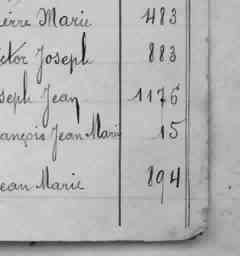 ierre Marie 483
ictor Joseph 883
seph Jean 1176
ançois Jean Marie 15
ean Marie 894